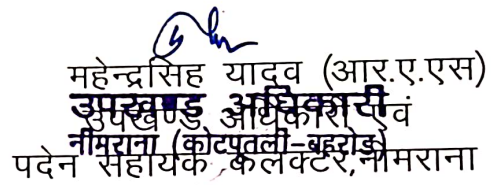 महेन्द्रसिह यादव (आर.ए.एस)
उपखण्ड अधिकारी
उपखण्ड अधिकारी एवं
नीमराना (कोटपूतली-बहरोड़)
पदेन सहायक कलेक्टर,नीमराना